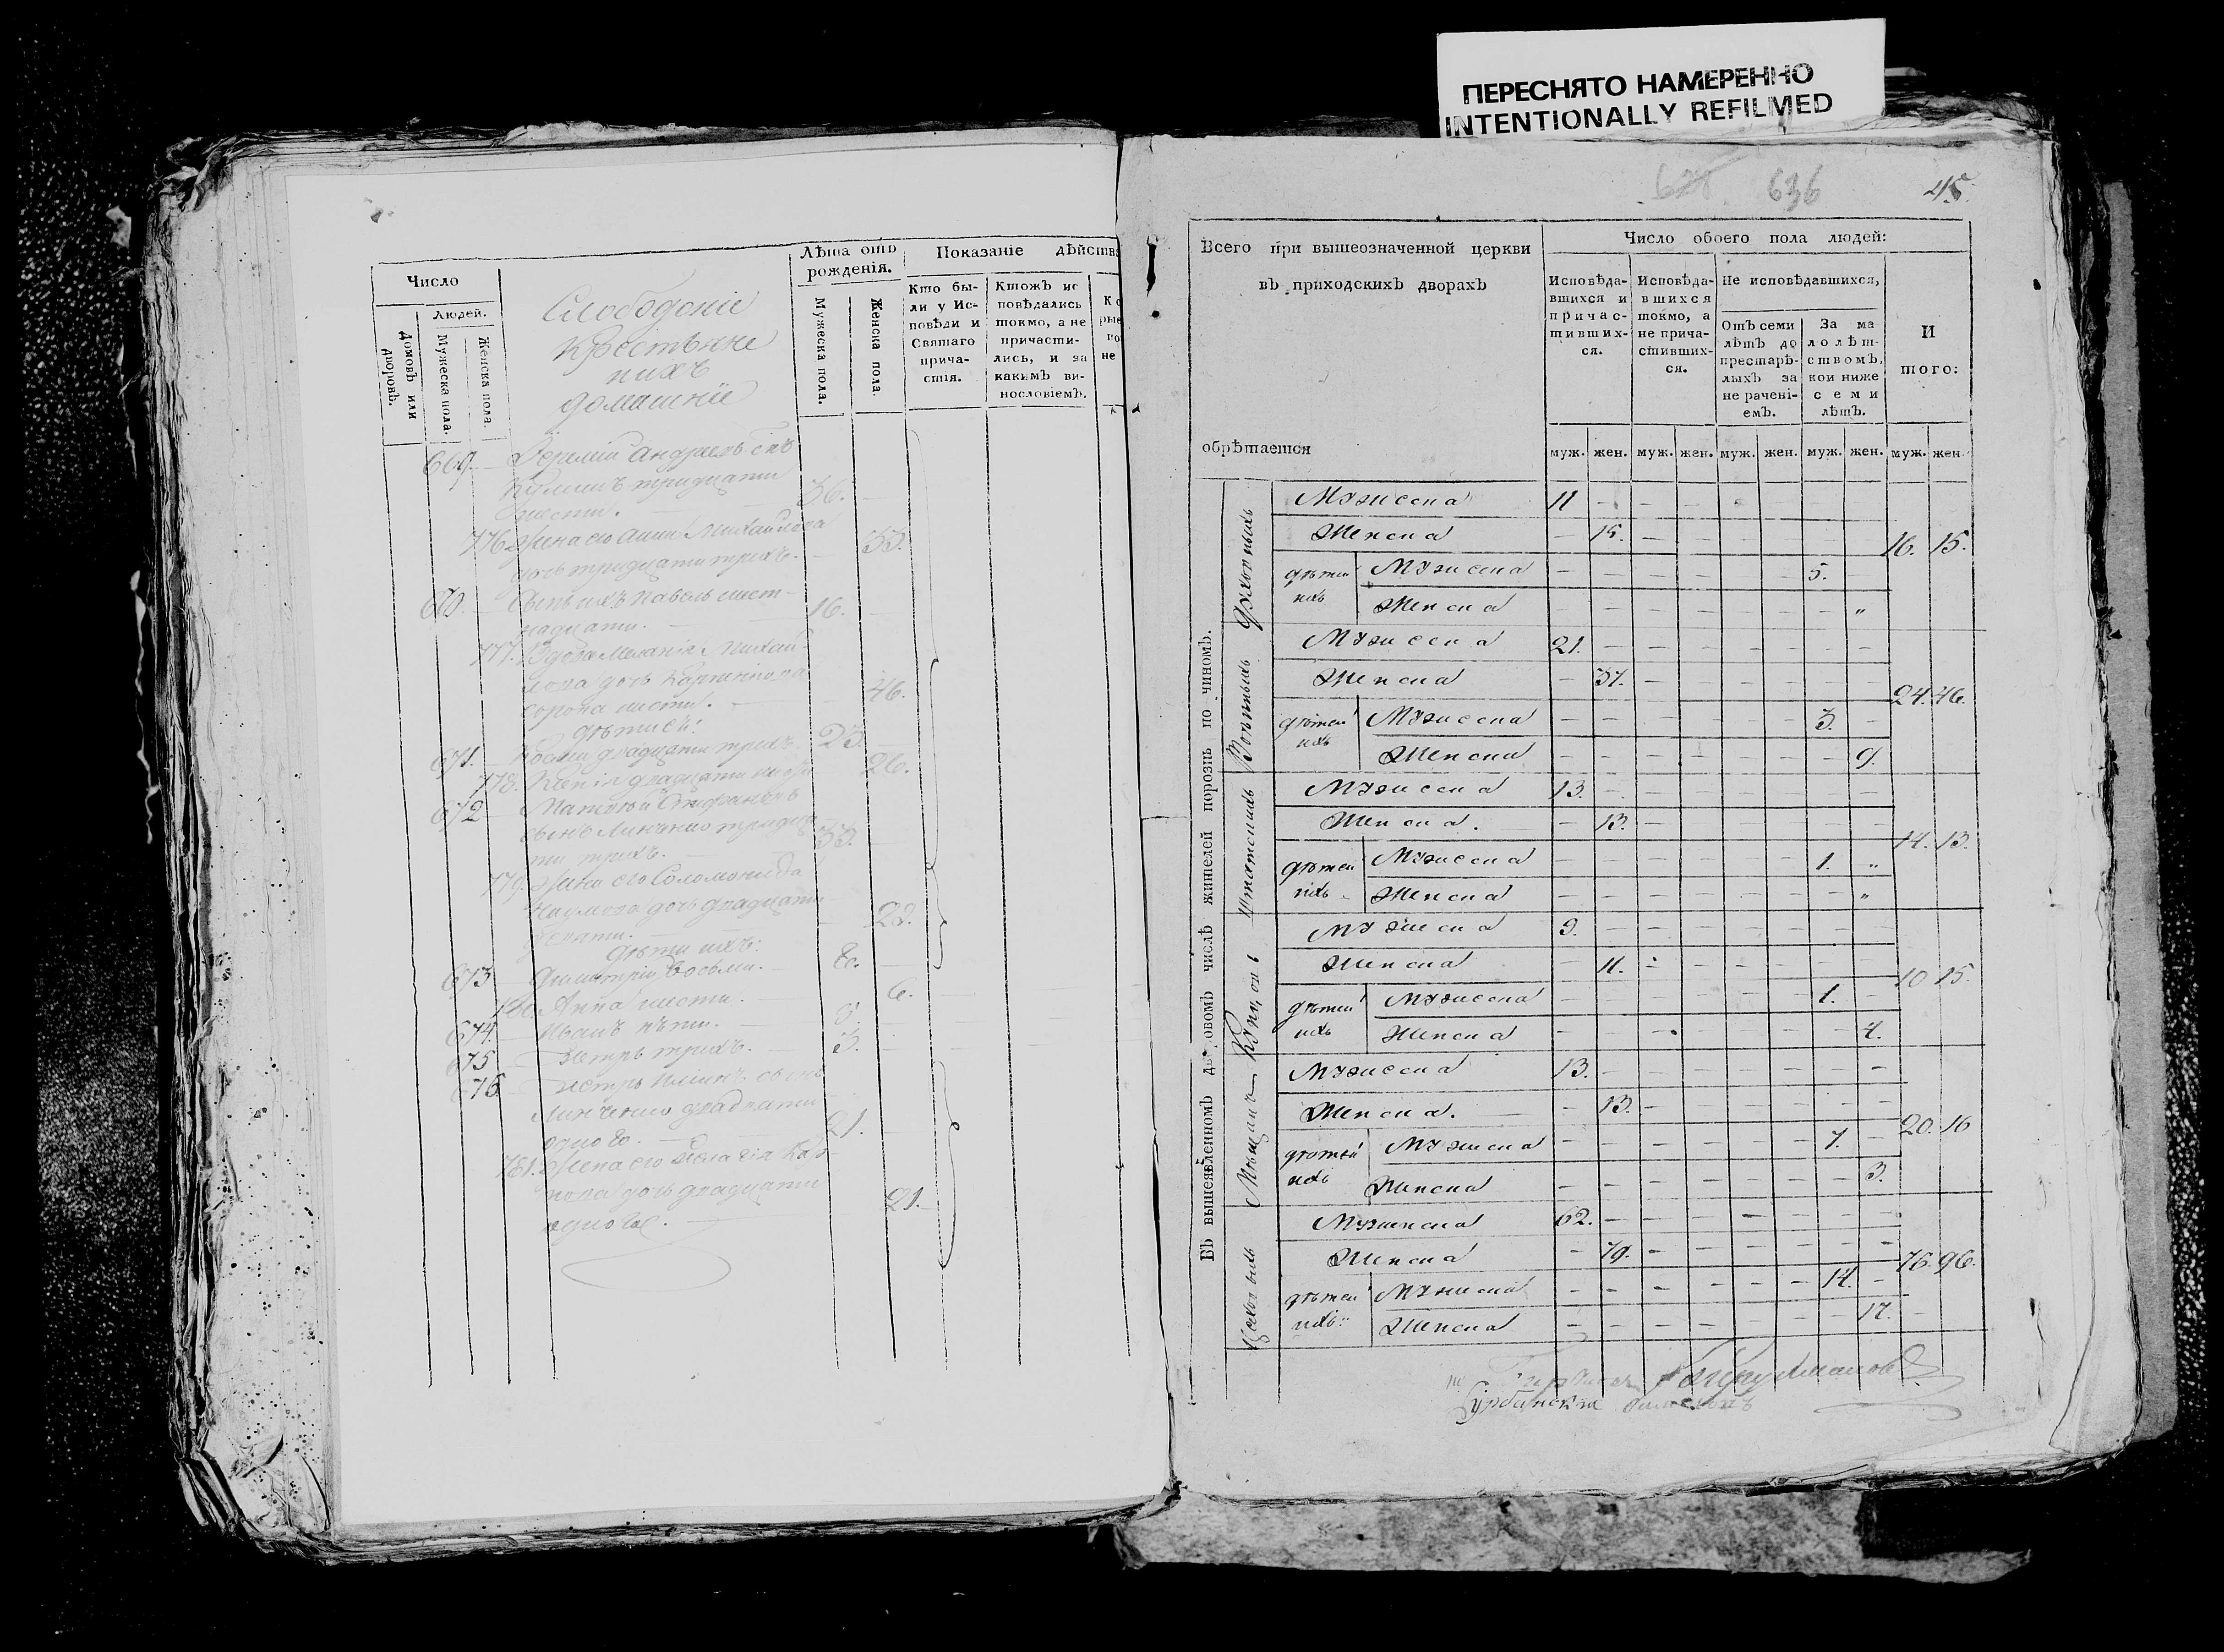 ПЕРЕСНЯТО НАМЕРЕННО
INTENTIONALLY REFILMED
Число
Людей.
Домовъ или дворовъ.
Мужеска пола.
Женска пола.
Слободскіе
Крестьяне
ихъ
домашніе
Лѣта отъ
рожденія.
Мужеска пола.
Женска пола.
Показаніе дѣйств
Кто бы-
ли у Ис-
повѣди и
Святаго
прича-
стія.
Ктожъ ис
повѣдались
токмо, а не
причасти-
лись, и за
какимъ ви-
нословіемъ.
669. Андреевъ снъ
тридцати
шести. 36.
776. Жена его Анна Михайлова
дочь тридцати трихъ. 33.
670. Сынъ ихъ Павелъ шест-
надцати. 16.
777. Вдова Меланія Михай-
лова дочь
сорока шести. 46.
дѣти еѣ:
671. Косма двадцати трихъ. 23.
778. двадцати шести 26.
672 Матѳей Стефановъ
сынъ Линченко тридца
ти трихъ. 33.
779. Жена его Соломонида
Наумова дочь двадцати
28.
дѣти ихъ:
673 Димитрій восьми. 8.
780. Анна шести. 6.
674. Иванъ пяти. 5.
675 Петръ трихъ. 3.
676 Петръ сынъ
Линченко двадцати
одного. 21.
781. Жена его Пелагія
дочь двадцати
одного. 21.
636 45.
Всего при вышеозначенной церкви
въ приходскихъ дворахъ
обрѣтается
Число обоего пола людей:
Исповѣда-
вшихся и
причас-
тивших-
ся.
Исповѣда-
вшихся
токмо, а
не прича-
стивших-
ся.
Не исповѣдавшихся,
Отъ семи
лѣтъ до
престарѣ-
лыхъ за
не рачені-
емъ.
За ма
лолѣт-
ствомъ,
кои ниже
семи
лѣтъ.
И
того:
муж. жен. муж. жен. муж. жен. муж. жен. муж. жен.
Въ вышеявленномъ дворовомъ числѣ жителей порознь по чиномъ.
Духовныхъ
Мужеска 11 – – – – – – –
Женска – 15. – – – – – – 16. 15.
дѣтей ихъ Мужеска – – – – – – 5. –
Женска – – – – – – – „
Военныхъ
Мужеска 21. – – – – – – –
Женска – 37. – – – – – – 24. 46.
дѣтей ихъ Мужеска – – – – – – 3. –
Женска – – – – – – – 9.
Штатскихъ
Мужеска 13. – – – – – – –
Женска. – 13. – – – – – – 14. 13.
дѣтей ихъ Мужеска – – – – – – 1. „
Женска – – – – – – – „
Мужеска 9. – – – – – – –
Женска – 11. – – – – – – 10 15.
дѣтей ихъ Мужеска – – – – – – 1. –
Женска – – – – – – – 4.
Мѣщанъ
Мужеска 13. – – – – – – –
Женска. – 13. – – – – – – 20. 16
дѣтей ихъ Мужеска – – – – – – 7. –
Женска – – – – – – – 3.
Цеховыхъ
Мужеска 62. – – – – – – –
Женска – 79. – – – – – – 76. 96.
дѣтей ихъ: Мужеска – – – – – – 14. –
Женска – – – – – – – 17.